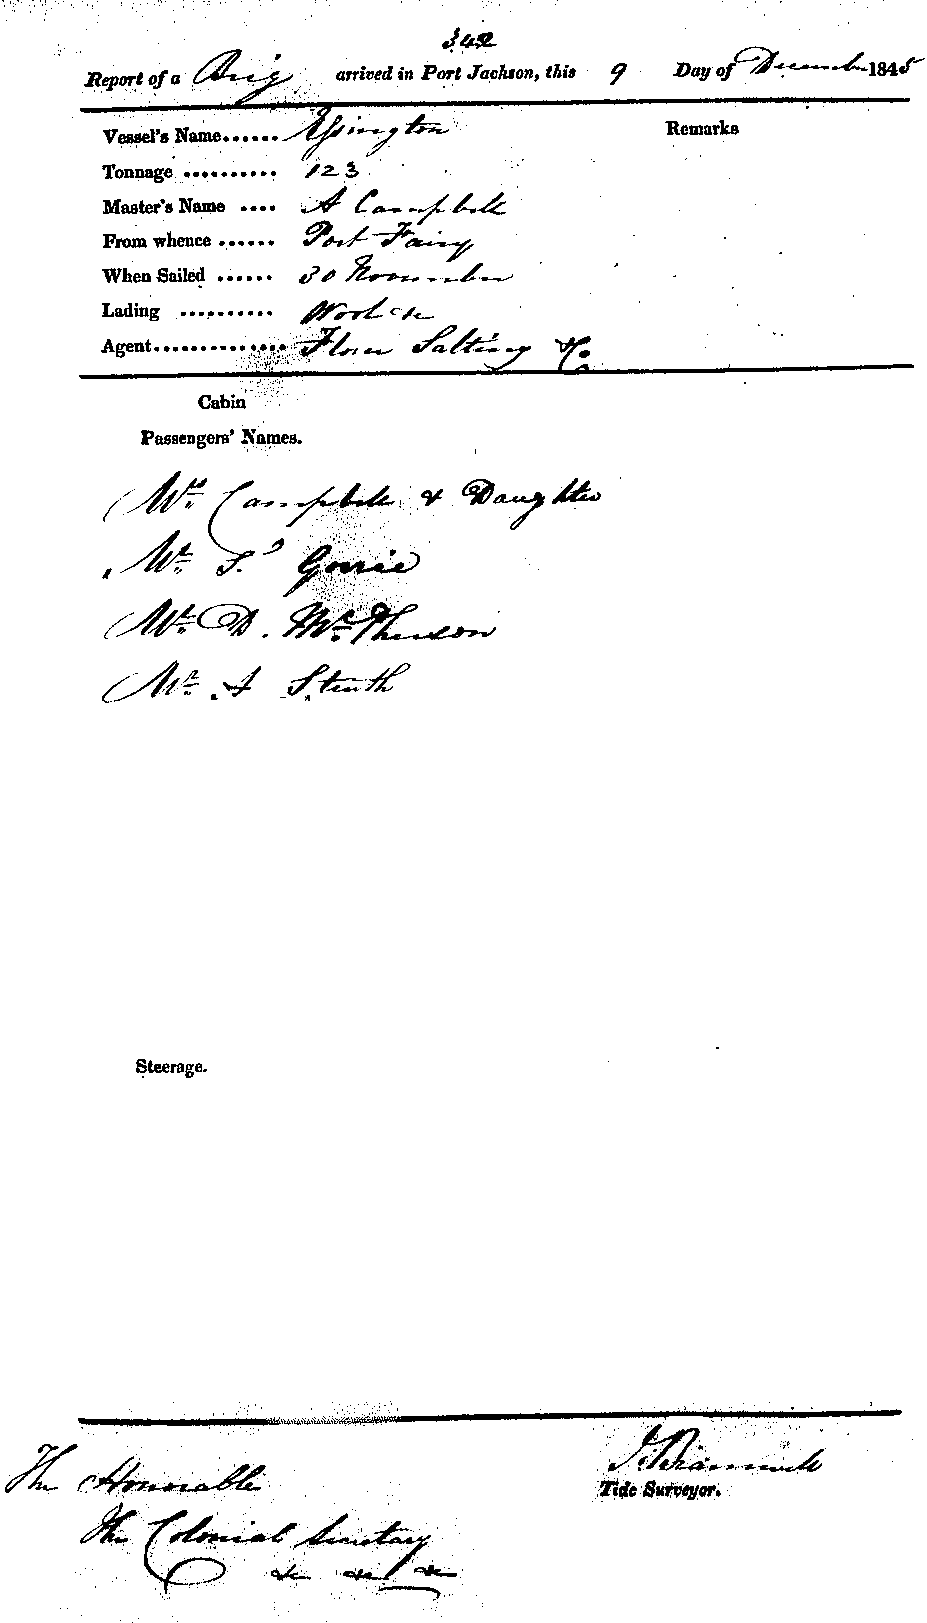 342
Report of a Brig arrived in Port Jackson, this 9 Day of December 1845
Vessel's Name...... Essington Remarks
Tonnage .......... 123
Master's Name .... A Campbell
From whence ...... Port Fairy
When Sailed ...... 30 November
Lading .......... Wool &c
Agent.............. Flower Salting & Co
Cabin
Passengers' Names.
Mrs Campbell & Daughter
Mr S. Gorrie
Mr D. McPherson
Mr A
Steerage.
The Honorable
Tide Surveyor.
The Colonial Secretary
&c &c &c